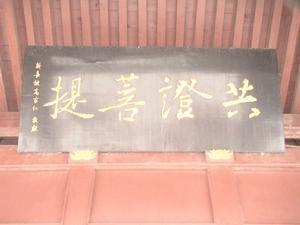 共證菩提